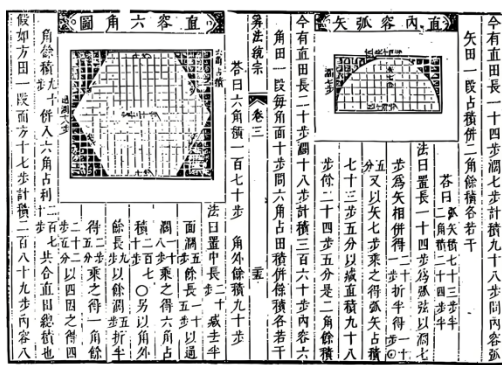 直內容弧矢
今有直田長一十四步濶七步計積九十八步問內容弧
矢田一段占積併二角餘積各若干
答曰 弧矢積七十三步半 二角積二十四步半
法曰置長一十四步為弧弦以濶七
步為矢相併得二十一步折半得一十步〇
五分又以矢七步乘之得弧矢占積
七十三步五分以減直積九十八
步餘二十四步五分是二角餘積
今有直田長二十步濶十八步計積三百六十步內容六
角田一段每角面十步問六角占田積併餘積各若干
算法統宗 卷三
直容六角圖
答曰六角積二百七十步 角外餘積九十步
法曰置中長二十步減去半
面濶五步餘長一十五步以通
濶一十八步乘之得六角占
積二百七十步〇另以角外
餘長五步以餘濶九步折半
得四步五分乘之得一角餘
二十二步五分以四因之得四
角餘積九十步併入六角占積二百七十步共合直田總積也
假如方田一段面方十七步計積二百八十九步內容八